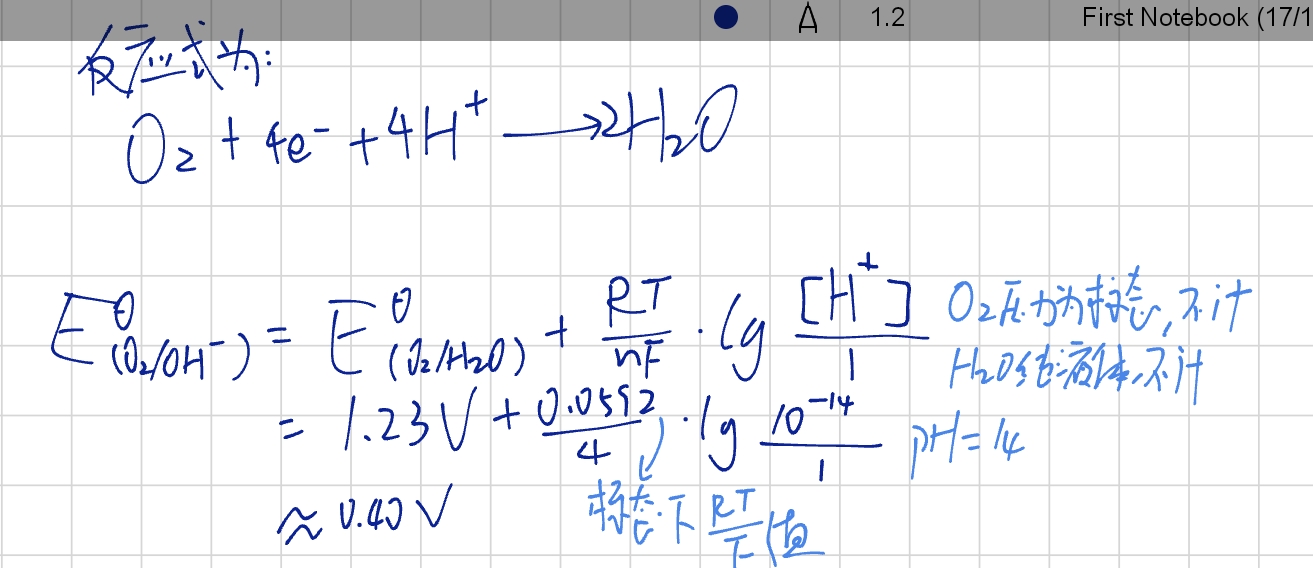 A 1.2 First Notebook (17/1
反应式为:
O₂ + 4e⁻ + 4H⁺ → 2H₂O
E^θ(O₂/OH⁻) = E^θ(O₂/H₂O) + RT/nF · lg [H⁺]/1 O₂压力为标态,不计
H₂O纯液体,不计
= 1.23V + 0.0592/4 · lg 10⁻¹⁴/1 pH=14
≈ 0.40V 标态下 RT/F 值